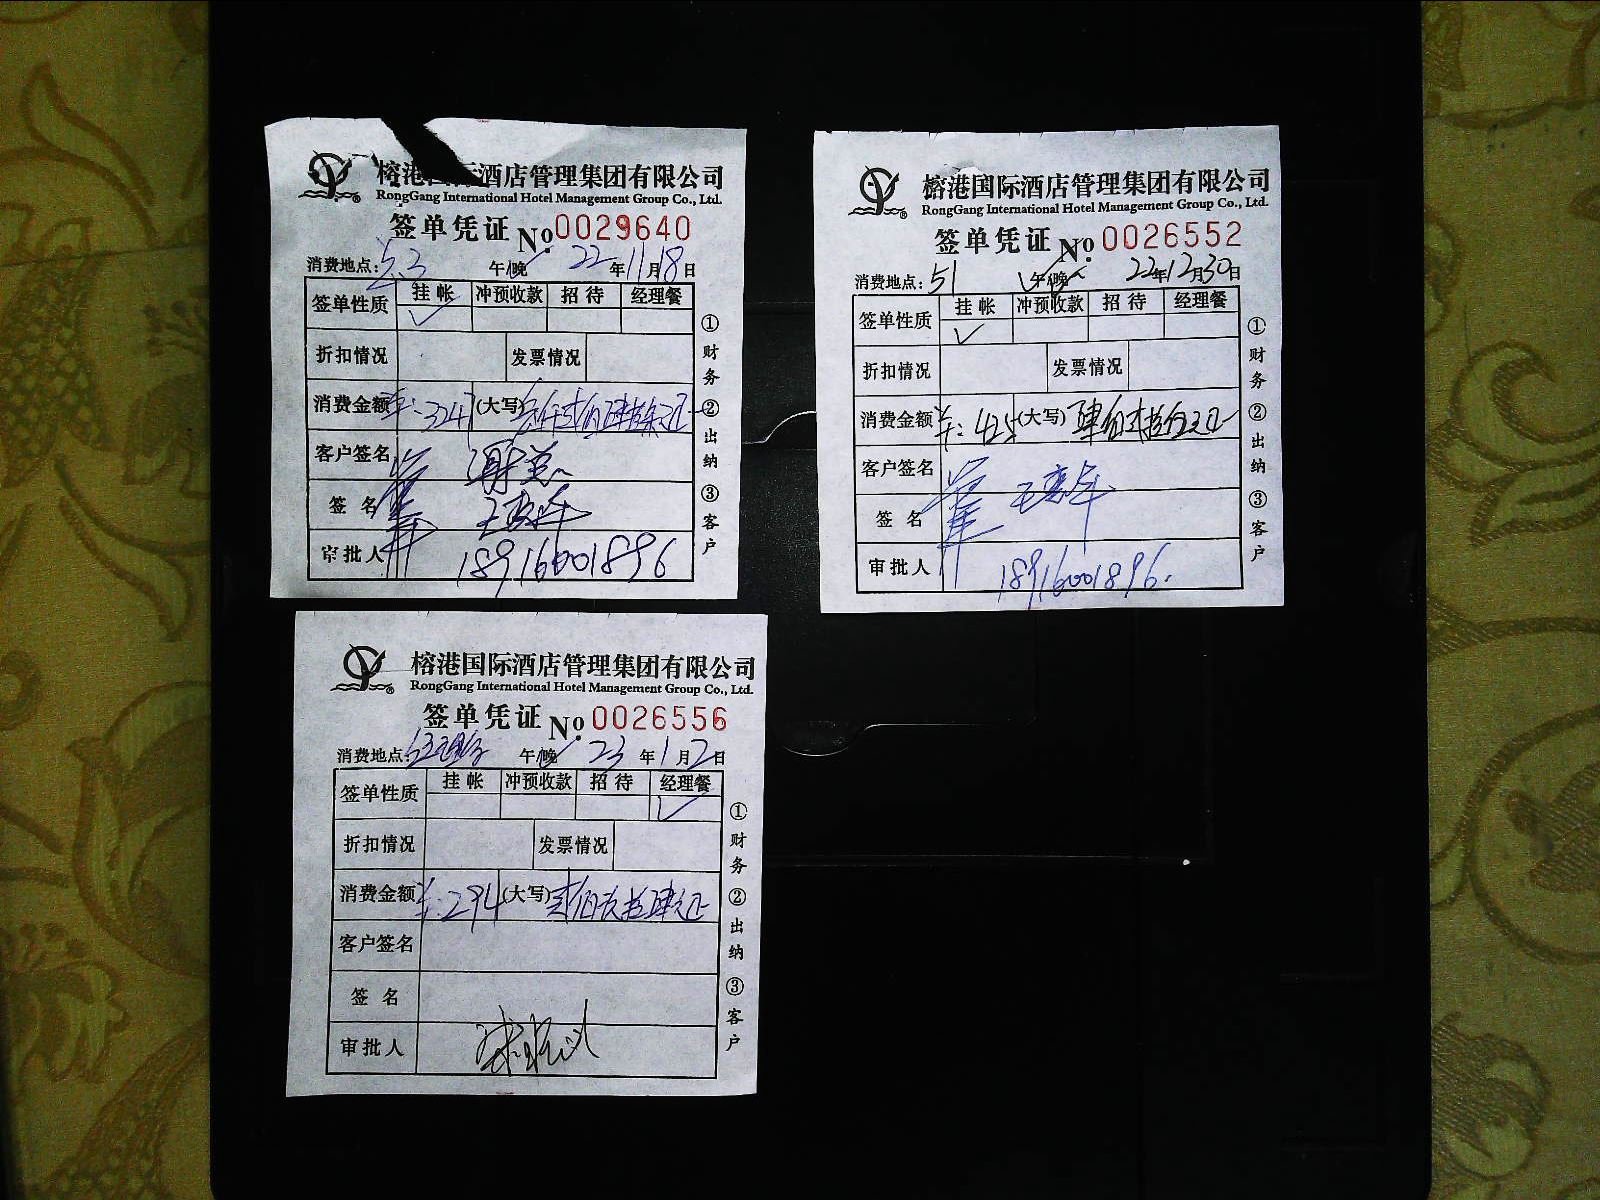 榕港国际酒店管理集团有限公司
RongGang International Hotel Management Group Co., Ltd.
签单凭证 №0029640
消费地点: 午/晚 22年11月18日
签单性质 挂帐 冲预收款 招待 经理餐
✓
折扣情况 发票情况
消费金额 ¥:3247 (大写) 叁仟贰佰肆拾柒元正
客户签名
签名
审批人 18916001896
①财务 ②出纳 ③客户
榕港国际酒店管理集团有限公司
RongGang International Hotel Management Group Co., Ltd.
签单凭证 №0026552
消费地点:51 午/晚 22年12月30日
签单性质 挂帐 冲预收款 招待 经理餐
✓
折扣情况 发票情况
消费金额 ¥:425 (大写) 肆佰贰拾伍元正
客户签名
签名
审批人 18916001896.
①财务 ②出纳 ③客户
榕港国际酒店管理集团有限公司
RongGang International Hotel Management Group Co., Ltd.
签单凭证 №0026556
消费地点: 午/晚 23年1月2日
签单性质 挂帐 冲预收款 招待 经理餐
✓
折扣情况 发票情况
消费金额 ¥:294 (大写) 贰佰玖拾肆元正
客户签名
签名
审批人
①财务 ②出纳 ③客户